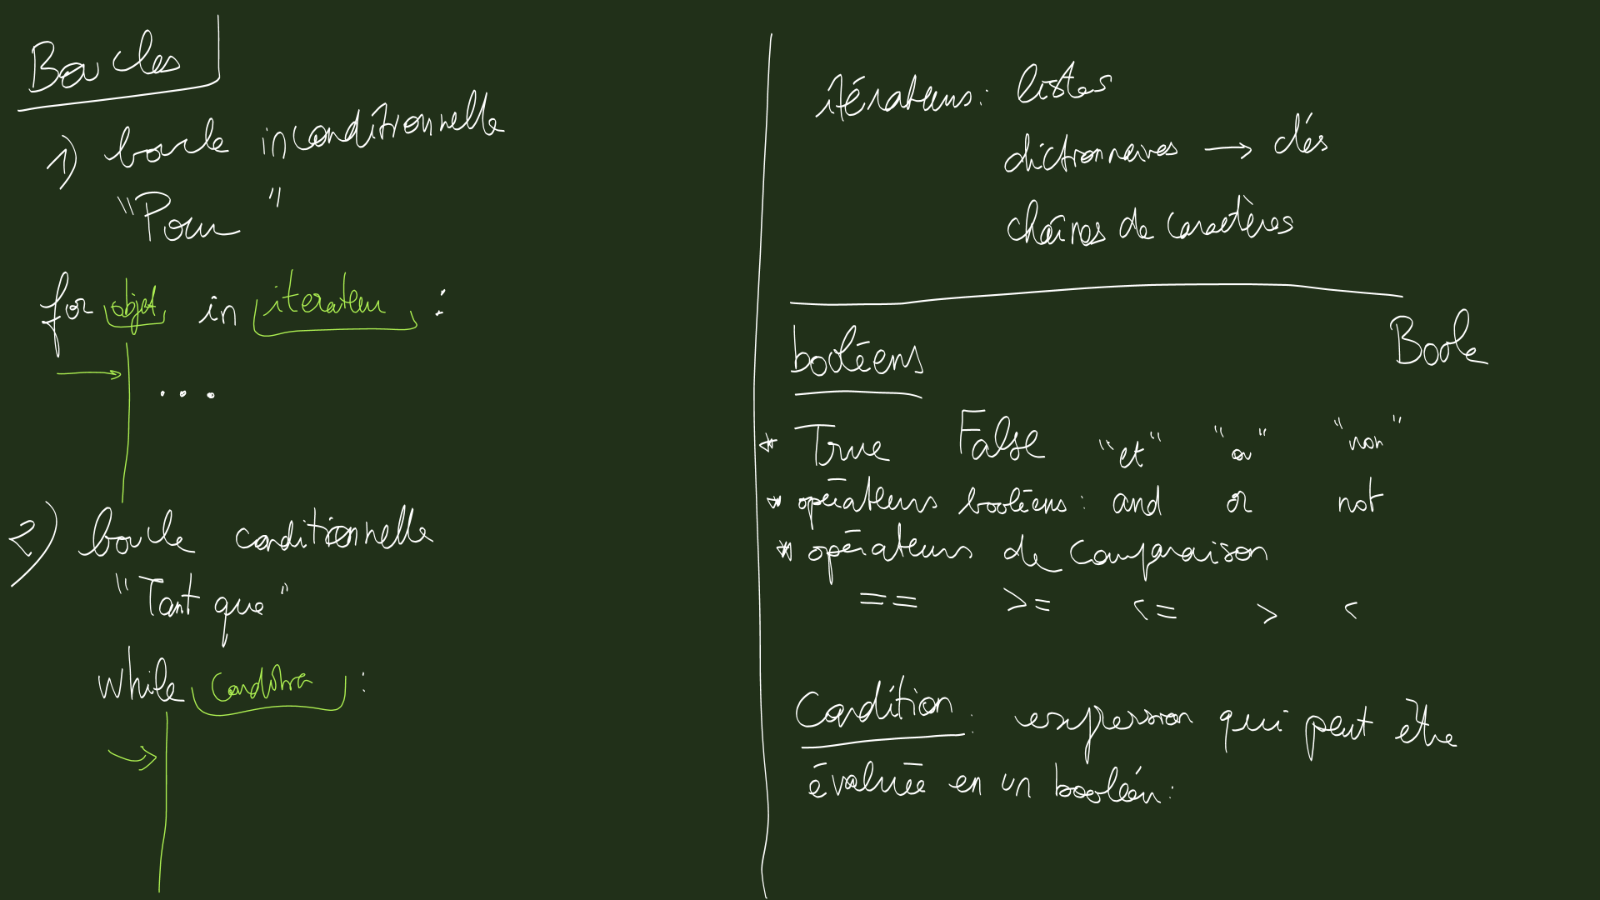 Boucles
1) boucle inconditionnelle
"Pour"
for objet in iterateur :
...
2) boucle conditionnelle
"Tant que"
while condition :
itérateurs : listes
dictionnaires → clés
chaînes de caractères
booléens Boole
* True False "et" "ou" "non"
* opérateurs booléens : and or not
* opérateurs de comparaison
== >= <= > <
Condition : expression qui peut être
évaluée en un booléen :